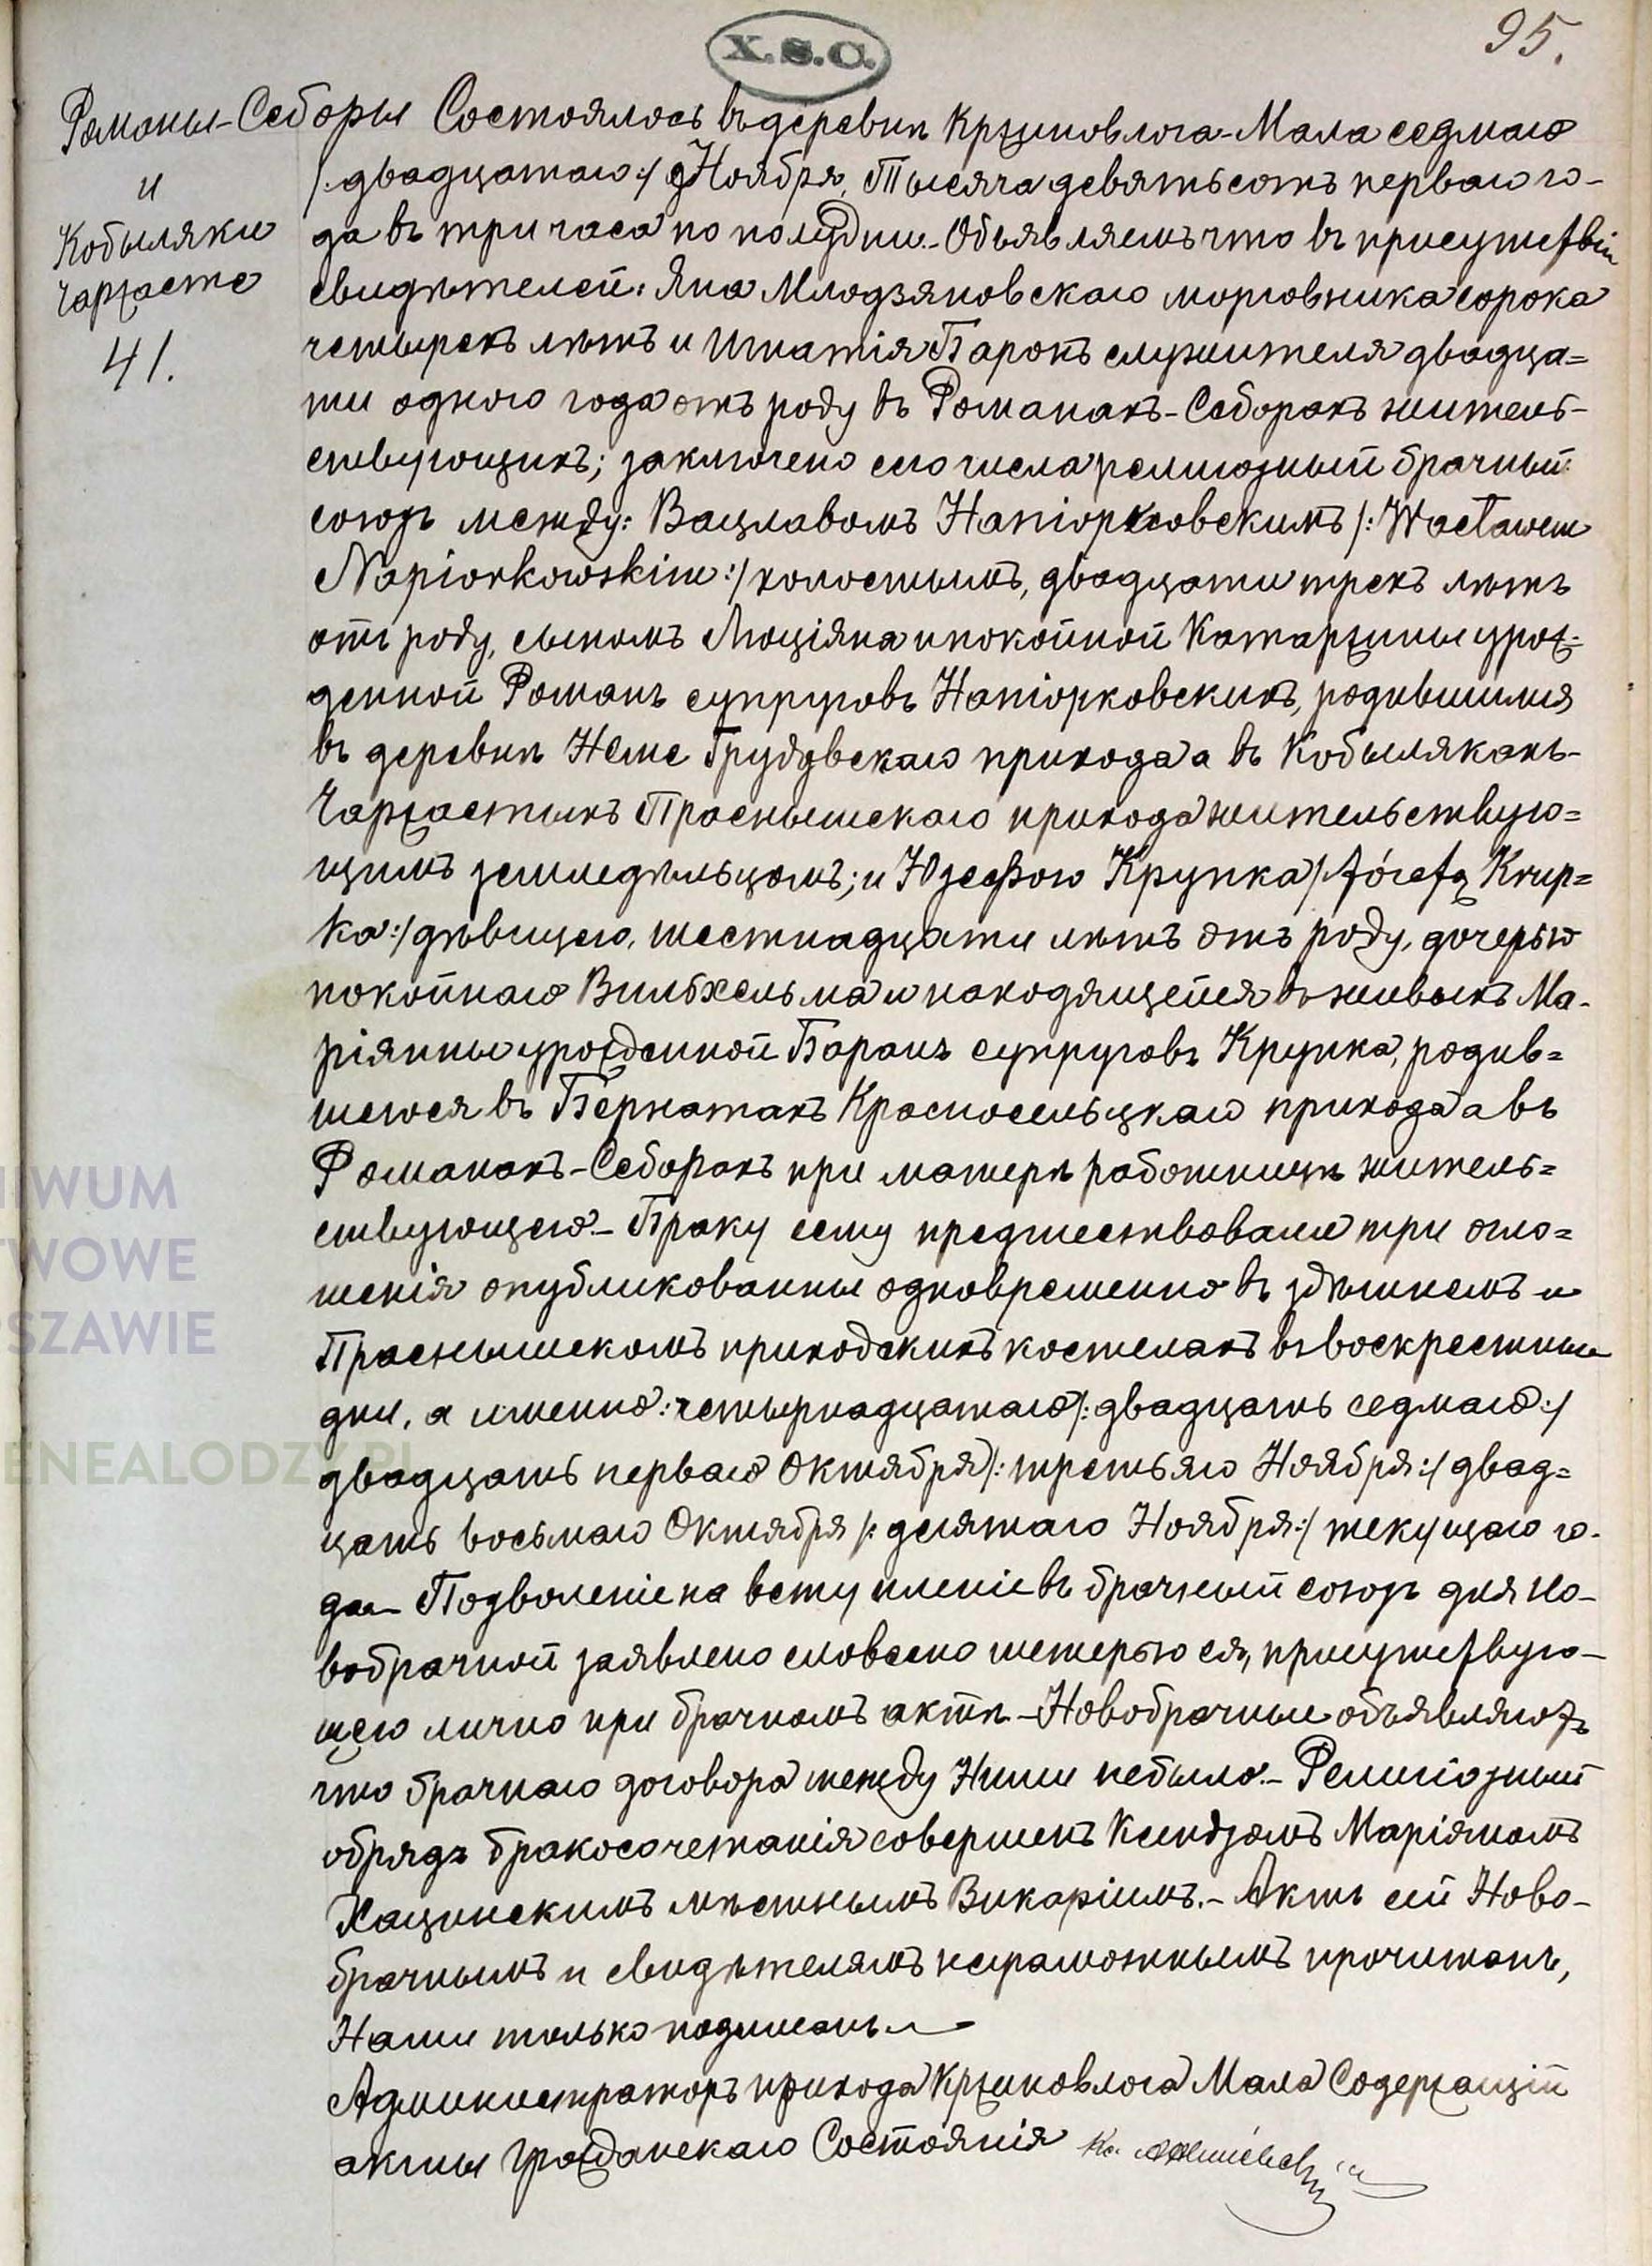 95.
X.S.C.
Романы-Себоры Состоялось въ деревни Крживовлога-Мала седмаго
и
Кобыляки
Чаржасте
41.
/:двадцатаго:/ Ноября, Тысяча девятьсотъ перваго го-
да въ три часа по полудни.- Объявляемъ что въ присутствіи
свидѣтелей: Яна Млодзяновскаго морговника сорока
четырехъ лѣтъ и Игнатія Барокъ служителя двадца=
ти одного года отъ роду въ Романахъ-Себорахъ житель-
ствующихъ; заключено сего числа религіозный брачный
союзъ между: Вацлавомъ Напіорковскимъ /: Wacławem
Napiorkowskim:/ холостымъ, двадцати трехъ лѣтъ
отъ роду, сыномъ Люціяна и покойной Катаржины урож-
денной Романъ супруговъ Напіорковскихъ, родившимся
въ деревни Грудувскаго прихода а въ Кобылякахъ-
Чаржастыхъ Праснышскаго прихода жительствую=
щимъ земледѣльцомъ; и Юзефою Крупка /:Józefą Krup=
ka:/ дѣвицею, шестнадцати лѣтъ отъ роду, дочерью
покойнаго Вильхельма и находящейся въ живыхъ Ма-
ріянны урожденной Баранъ супруговъ Крупка, родив=
шеюся въ Бернатахъ Красносельцкаго прихода а въ
Романахъ-Себорахъ при матери работницѣ житель=
ствующею.- Браку сему предшествовали три огло=
шенія опубликованны одновременно въ здѣшнемъ и
Праснышскомъ приходскихъ костелахъ въ воскрестные
дни, а именно: четырнадцатаго /:двадцать седмаго:/
двадцать перваго Октября /:третьяго Ноября:/ двад=
цать восьмаго Октября /:десятаго Ноября:/ текущаго го-
да.- Подволеніе на вступленіе въ брачный союзъ для но-
вобрачной заявлено словесно метерью ея, присутствую-
щею лично при брачномъ актѣ.- Новобрачные объявляютъ
что брачнаго договора между Ними небыло.- Религіозный
обрядъ бракосочетанія совершенъ Ксендзомъ Маріяномъ
Хацинскимъ мѣстнымъ Викаріимъ.- Актъ сей Ново-
брачнымъ и свидѣтелямъ неграмотнымъ прочитанъ,
Нами только подписанъ.-
Администраторъ прихода Крживовлога Мала Содержащій
акты Гражданскаго Состоянія Кс.
ARCHIWUM
PAŃSTWOWE
W WARSZAWIE
GENEALODZY.PL